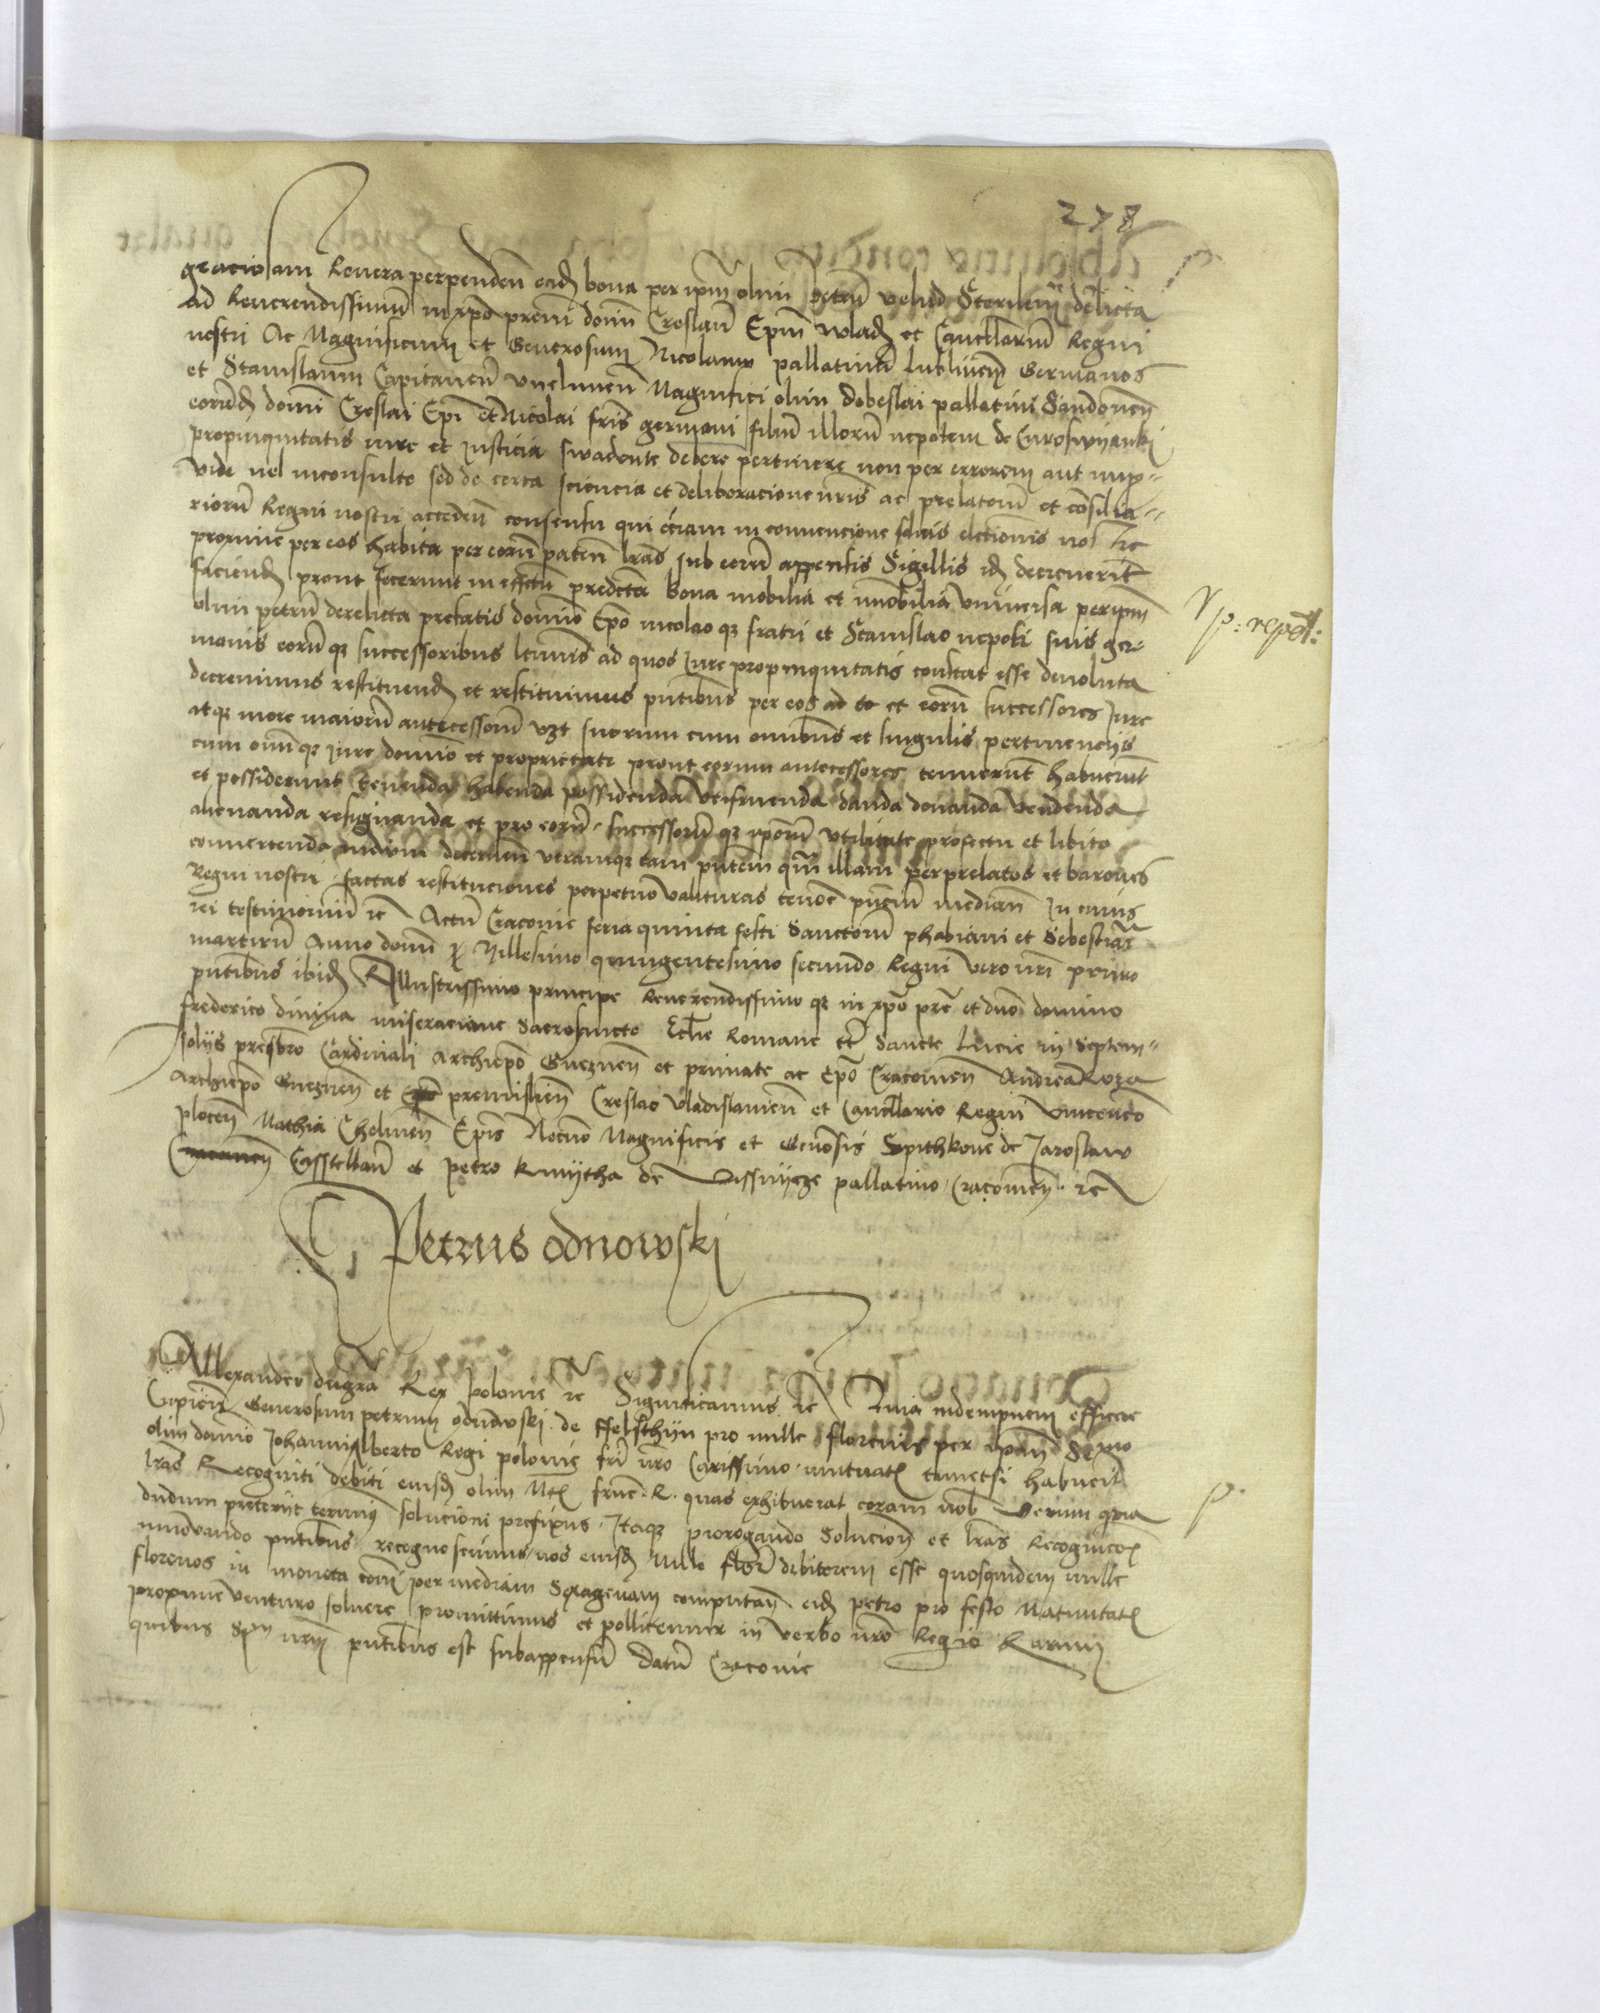 278
graciosam Revera perpenden eid bona per ipm olim petru velud Sterilem derelicta
Ad Reverendissimu in xpo prem domi Creslau Epm Wlad et Cancellariu Regni
nostri Ac Magnificum et Generosum Nicolaum pallatinu lublinen Germanos
et Stanislaum Capitaneu Chelmen Magnifici olim dobeslai pallatini Sandomien
eorund domi Creslai Epi et Nicolai fris germani filiu illoru nepotem de Curoswyanki
propinquitatis iure et Justicia swadente debere pertinere non per errorem aut imp-
vide vel inconsulte sed de certa sciencia et deliberacione nris ac prelatoru et consilia-
rioru Regni nostri acceden consensu qui eciam in convencione felicis electionis nos hic
proxime per eos habita per eoru paten lras sub eoru appensis Sigillis id decreverut
faciend prout fecerunt in effectu predicta bona mobilia et imobilia universa per ipm
olim petru derelicta prefatis domino Epo nicolao qz fratri et Stanislao nepoti suis ger-
manis eoru qz successoribus ltimis ad quos Jure propinquitatis constat esse devoluta
decrevimus restituend et restituimus pntibus per eos ad se et eoru successores Jure
atqz more maioru antecessoru vzt suorum cum omnibus et singulis pertinencys
cum omiqz Jure domio et proprietate prout eorum antecessores tenuerut habuerut
et possiderunt tenenda habenda possidenda utifruenda danda donanda vendenda
alienanda resignanda et pro eoru successoru qz ipsoru utilitate profectu et libito
convertenda decernen utramqz tam pntem qm illam per prelatos et barones
Regni nostri factas restituciones perpetuo valituras tenore pnciu median In cuius
rei testimoniu rc Actu Cracovie feria quinta festi Sanctoru phabiani et Sebestiai
martiru Anno domi Millesimo quingentesimo secundo Regni vero nri primo
pntibus ibid Illustrissimo principe Reverendissimo qz in xpo pre et dno domino
frederico divina miseracione sacrosancte Ecclie Romane tt Sancte Lucie in Septem-
solys presbro Cardinali Archiepo Gneznen et primate ac Epo Cracovien Andrea Roza
Archiepo Gneznen et Epo premislien Creslao Vladislavien et Cancellario Regni Vincencio
plocen Mathia Chelmen Epis Necno Magnificis et Genosis Spithkone de Jaroslaw
Castellan et petro kmytha de Vissnycze pallatino Cracovien rc
Petrus odnowski
p: repet:
Allexander dei gra Rex polonie rc Significamus rc Quia indempnem efficere
Cupien Generosum petrum odnowski de ffelsthyn pro mille florenis per ipm Semo
olim domio Johanni Alberto Regi polonie fri nro Carissimo mutuat tametsi habuerit
lras Recogniti debiti eiusd olim Mts frnc. R. quas exhibuerat coram nob Verum quia
dudum preteriit terminus solucioni prefixus Itaqz prorogando Solucion et lras Recognicois
innovando pntibus recognoscimus nos eiusd mille flor debitorem esse quosquidem mille
florenos in moneta coi per mediam Sexagenam computan eid petro pro festo Nativitatis
proxime venturo solvere promittimus et pollicemur in verbo nro Regio Harum
quibus S nrm pntibus est subappensu Datu Cracovie
p.